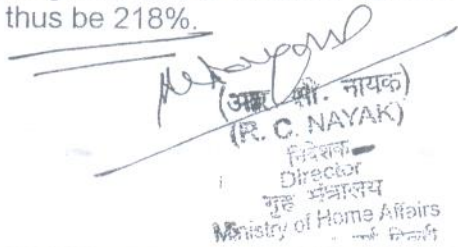 thus be 218%.
(आर. सी. नायक)
(R. C. NAYAK)
निदेशक
Director
गृह मंत्रालय
Ministry of Home Affairs